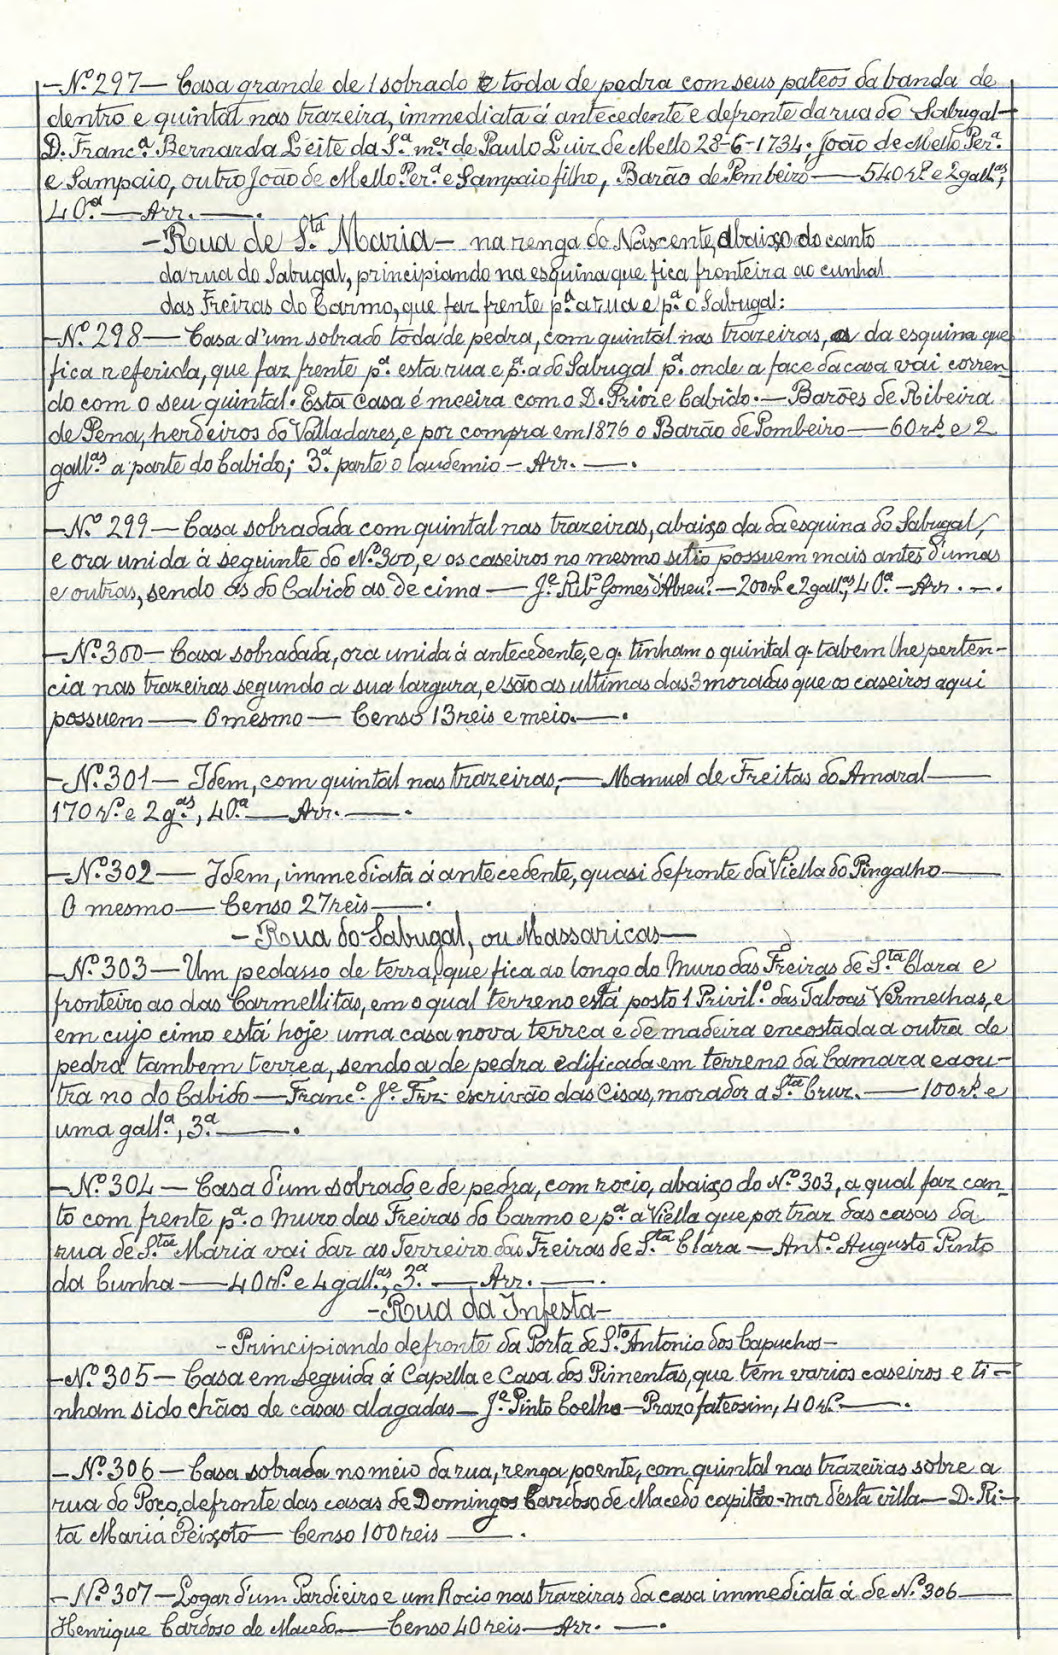 - Nº 297 — Casa grande de 1 sobrado e toda de pedra com seus pateos da banda de
dentro e quintal nas trazeira, immediata á antecedente e defronte da rua do Sabugal —
D. Francª. Bernarda Leite da Sª. mer. de Paulo Luiz de Mello 28-6-1734. João de Mello Perª.
e Sampaio, outro João de Mello Perª. e Sampaio filho, Barão de Pombeiro — 540 rs. e 2 gallas.,
40ª. — Arr. — .
- Rua de Sta. Maria - na renga do Nascente, abaixo do canto
da rua do Sabugal, principiando na esquina que fica fronteira ao cunhal
das Freiras do Carmo, que faz frente pª. a rua e pª. o Sabugal:
- Nº. 298 — Casa d'um sobrado toda de pedra, com quintal nas trazeiras, a da esquina que
fica referida, que faz frente pª. esta rua e pª. a do Sabugal pª. onde a face da casa vai corren-
do com o seu quintal. Esta casa é meeira com o D. Prior e Cabido. — Barões de Ribeira
de Pena, herdeiros do Valladares, e por compra em 1876 o Barão de Pombeiro — 60 rs. e 2
gallas. a parte do Cabido; 3ª. parte o laudemio - Arr. — .
- Nº 299 — Casa sobradada com quintal nas trazeiras, abaixo da da esquina do Sabugal,
e ora unida á seguinte do Nº. 300, e os caseiros no mesmo sitio possuem mais antes d'umas
e outras, sendo as do Cabido as de cima — Je. Ribº. Gomes d'Abreu. — 200 rs. e 2 gallas., 40ª. - Arr. — .
- Nº. 300 — Casa sobradada, ora unida á antecedente, e q. tinham o quintal q. tabem lhe perten-
cia nas trazeiras segundo a sua largura, e são as ultimas das 3 moradas que os caseiros aqui
possuem — O mesmo — Censo 13 reis e meio. — .
- Nº. 301 — Idem, com quintal nas trazeiras, — Manuel de Freitas do Amaral —
170 rs. e 2 gas., 40ª. — Arr. — .
- Nº. 302 — Idem, immediata á antecedente, quasi defronte da Viella do Pingalho —
O mesmo — Censo 27 reis — .
- Rua do Sabugal, ou Massaricas —
- Nº. 303 — Um pedasso de terra, que fica ao longo do Muro das Freiras de Sta. Clara e
fronteiro ao das Carmellitas, em o qual terreno está posto 1 Privilº. das Taboas Vermelhas, e
em cujo cimo está hoje uma casa nova terrea e de madeira encostada a outra de
pedra tambem terrea, sendo a de pedra edificada em terreno da Camara e a ou-
tra no do Cabido — Francº. Je. Frz. escrivão das Cisas, morador a Sta. Cruz. — 100 rs. e
uma gallª., 3ª. — .
- Nº. 304 — Casa d'um sobrado e de pedra, com rocio, abaixo do Nº. 303, a qual faz can-
to com frente pª. o Muro das Freiras do Carmo e pª. a Viella que por traz das casas da
rua de Sta. Maria vai dar ao Terreiro das Freiras de Sta. Clara — Antº. Augusto Pinto
da Cunha — 40 rs. e 4 gallas., 3ª. — Arr. — .
- Rua da Infesta -
- Principiando defronte da Porta de Sto. Antonio dos Capuchos -
- Nº. 305 — Casa em seguida á Capella e Casa dos Pimentas, que têm varios caseiros e ti-
nham sido chãos de casas alagadas — Je. Pinto Coelho — Prazo fateosim, 40 rs. — .
- Nº. 306 — Casa sobrada no meio da rua, renga poente, com quintal nas trazeiras sobre a
rua do Poço, defronte das casas de Domingos Cardoso de Macedo capitão-mor desta villa — D. Ri-
ta Maria Peixoto — Censo 100 reis — .
- Nº. 307 — Logar d'um Pardieiro e um Rocio nas trazeiras da casa immediata á de Nº. 306 —
Henrique Cardoso de Macedo — Censo 40 reis — Arr. — .